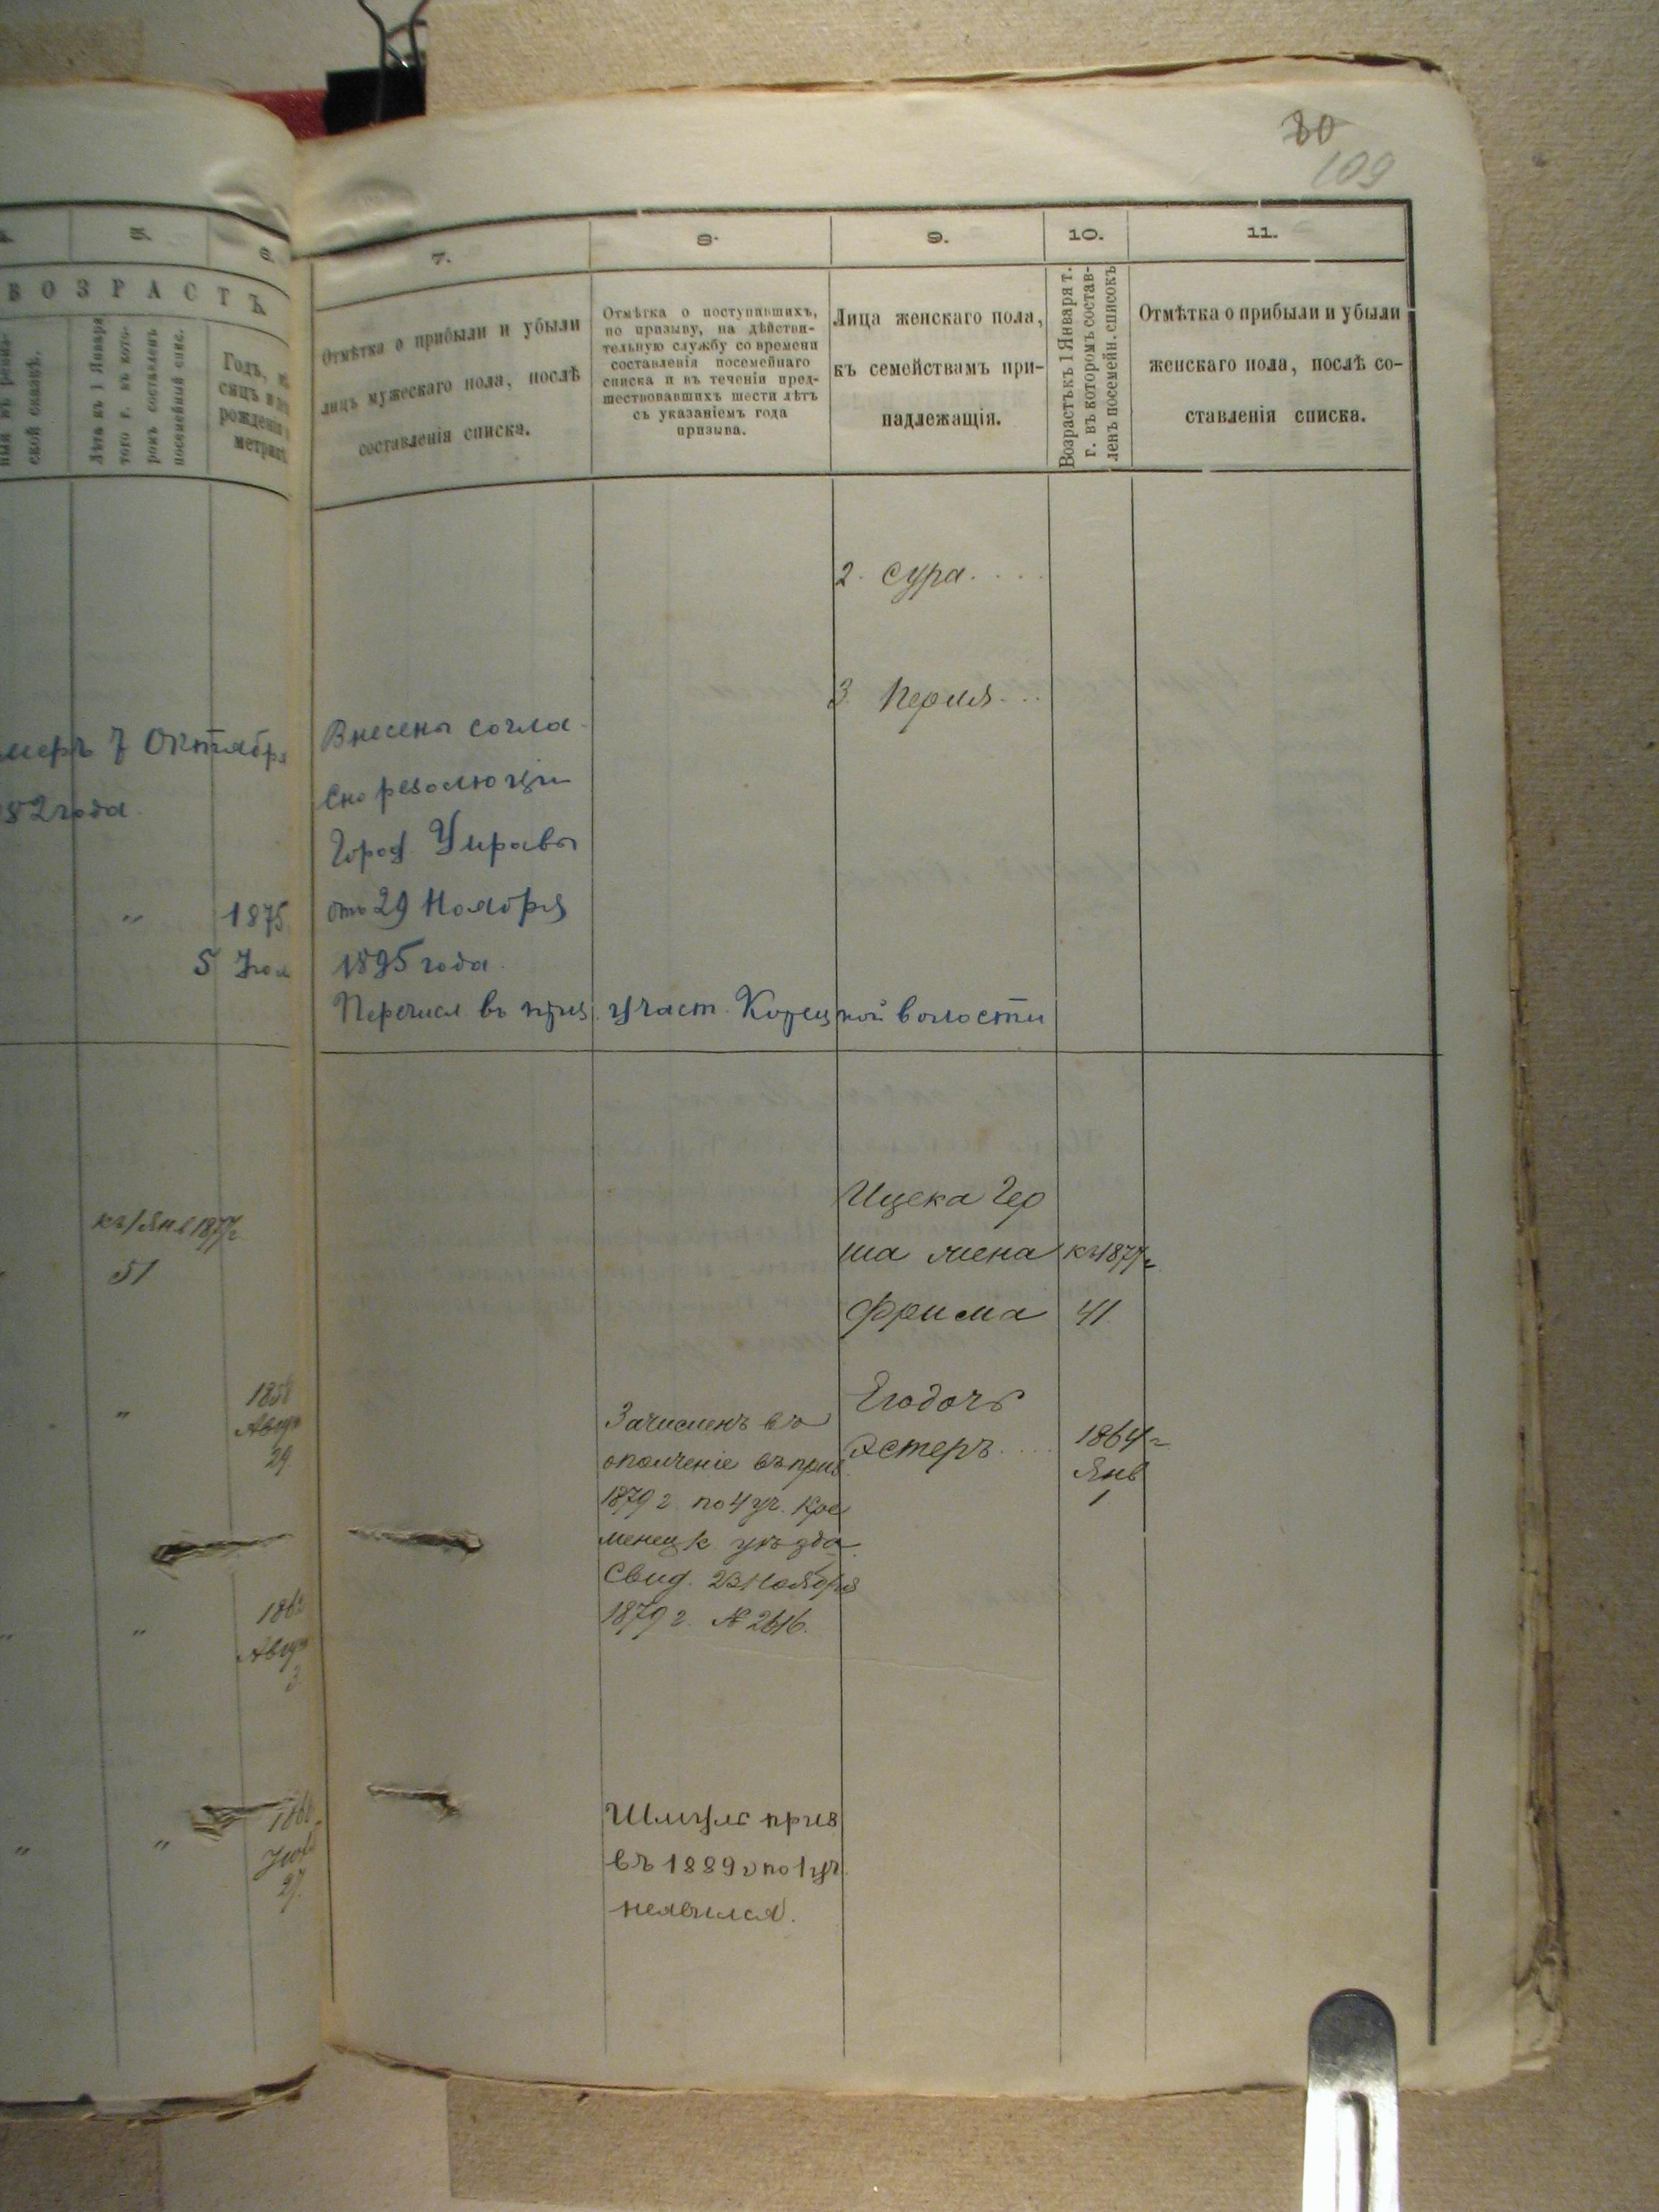 80
109
5.
6.
ВОЗРАСТЪ
Лѣта къ 1 Января
того г. въ кото-
ромъ составленъ
посемейный спис.
Годъ, мѣ
сяцъ и
рожденія
метрик
7.
8.
9.
10.
11.
Отмѣтка о прибыли и убыли
лицъ мужескаго пола, послѣ
составленія списка.
Отмѣтка о поступившихъ,
по призыву, на дѣйстви-
тельную службу со времени
составленія посемейнаго
списка и въ теченіи пред-
шествовавшихъ шести лѣтъ
съ указаніемъ года
призыва.
Лица женскаго пола,
къ семействамъ при-
надлежащія.
Возрастъ къ 1 Января т.
г. въ которомъ состав-
ленъ посемейн. списокъ
Отмѣтка о прибыли и убыли
женскаго пола, послѣ со-
ставленія списка.
2. Сура....
3. Перля...
меръ 7 Октября
82 года
" 1875
5 Іюл
Внесены согла
сно резолюціи
Город. Управы
отъ 29 Ноября
1895 года.
Перечисл. въ приз. участ. Корецкой волости
къ 1 Янв 1877 г
51
Ицека Гер
ша жена
Фрима
къ 1877 г
41
Его дочь
Эстеръ....
1864 г
Янв
1
" 1858
Август
29
Зачисленъ въ
ополченіе въ приз.
1879 г. по 4 уч. Кре
менецк. уѣзда.
Свид. 23 Ноября
1879 г. № 2616.
" "
Август
3
Шмуль приз
въ 1889 г по 1 уч.
неявился.
" "
27.